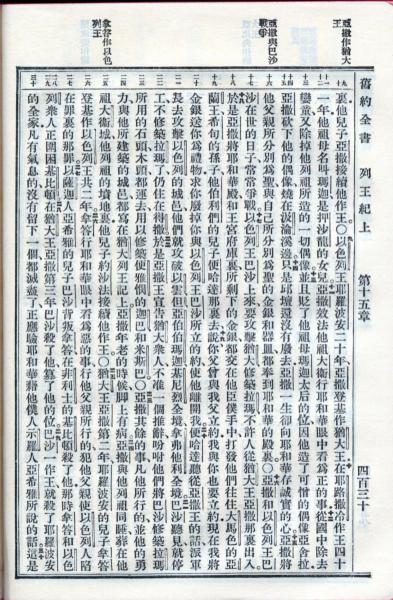 舊約全書 列王紀上 第十五章 四百三十
亞撒作猶大王
亞撒與巴沙戰爭
拿答作以色列王
裏他兒子亞撒接續他作王○以色列王耶羅波安二十年亞撒登基作猶大王在耶路撒冷作王四十
一年他祖母名叫瑪迦是押沙龍的女兒亞撒效法他祖大衛行耶和華眼中看爲正的事從國中除去
孌童又除掉他列祖所造的一切偶像並且貶了他祖母瑪迦太后的位因他造了可憎的偶像亞舍拉
亞撒砍下他的偶像燒在汲淪溪邊只是邱壇還沒有廢去亞撒一生卻向耶和華存誠實的心亞撒將
他父親所分別爲聖與自己所分別爲聖的金銀和器皿都奉到耶和華的殿裏○亞撒和以色列王巴
沙在世的日子常常爭戰以色列王巴沙上來要攻擊猶大修築拉瑪不許人從猶大王亞撒那裏出入
於是亞撒將耶和華殿和王宮府庫裏所剩下的金銀都交在他臣僕手中打發他們往住大馬色的亞
蘭王希旬的孫子他伯利們的兒子便哈達那裏去說你父曾與我父立約我與你也要立約現在我將
金銀送你爲禮物求你廢掉你與以色列王巴沙所立的約使他離開我便哈達聽從亞撒王的話派軍
長去攻擊以色列的城邑他們就攻破以雲但亞伯伯瑪迦基尼烈全境拿弗他利全境巴沙聽見就停
工不修築拉瑪了仍住在得撒於是亞撒王宣告猶大衆人不准一個推辭吩咐他們將巴沙修築拉瑪
所用的石頭木頭都運去用以修築便雅憫的迦巴和米斯巴○亞撒其餘的事凡他所行的並他的勇
力與他所建築的城邑都寫在猶大列王記上亞撒年老的時候脚上有病亞撒與他列祖同睡葬在他
祖大衛城他列祖的墳地裏他兒子約沙法接續他作王○猶大王亞撒第二年耶羅波安的兒子拿答
登基作以色列王共二年拿答行耶和華眼中看爲惡的事行他父親所行的犯他父親使以色列人陷
在罪裏的那罪以薩迦人亞希雅的兒子巴沙背叛拿答在非利士的基比頓殺了他那時拿答和以色
列衆人正圍困基比頓在猶大王亞撒第三年巴沙殺了他篡了他的位巴沙一作王就殺了耶羅波安
的全家凡有氣息的沒有留下一個都滅盡了正應驗耶和華藉他僕人示羅人亞希雅所說的話這是